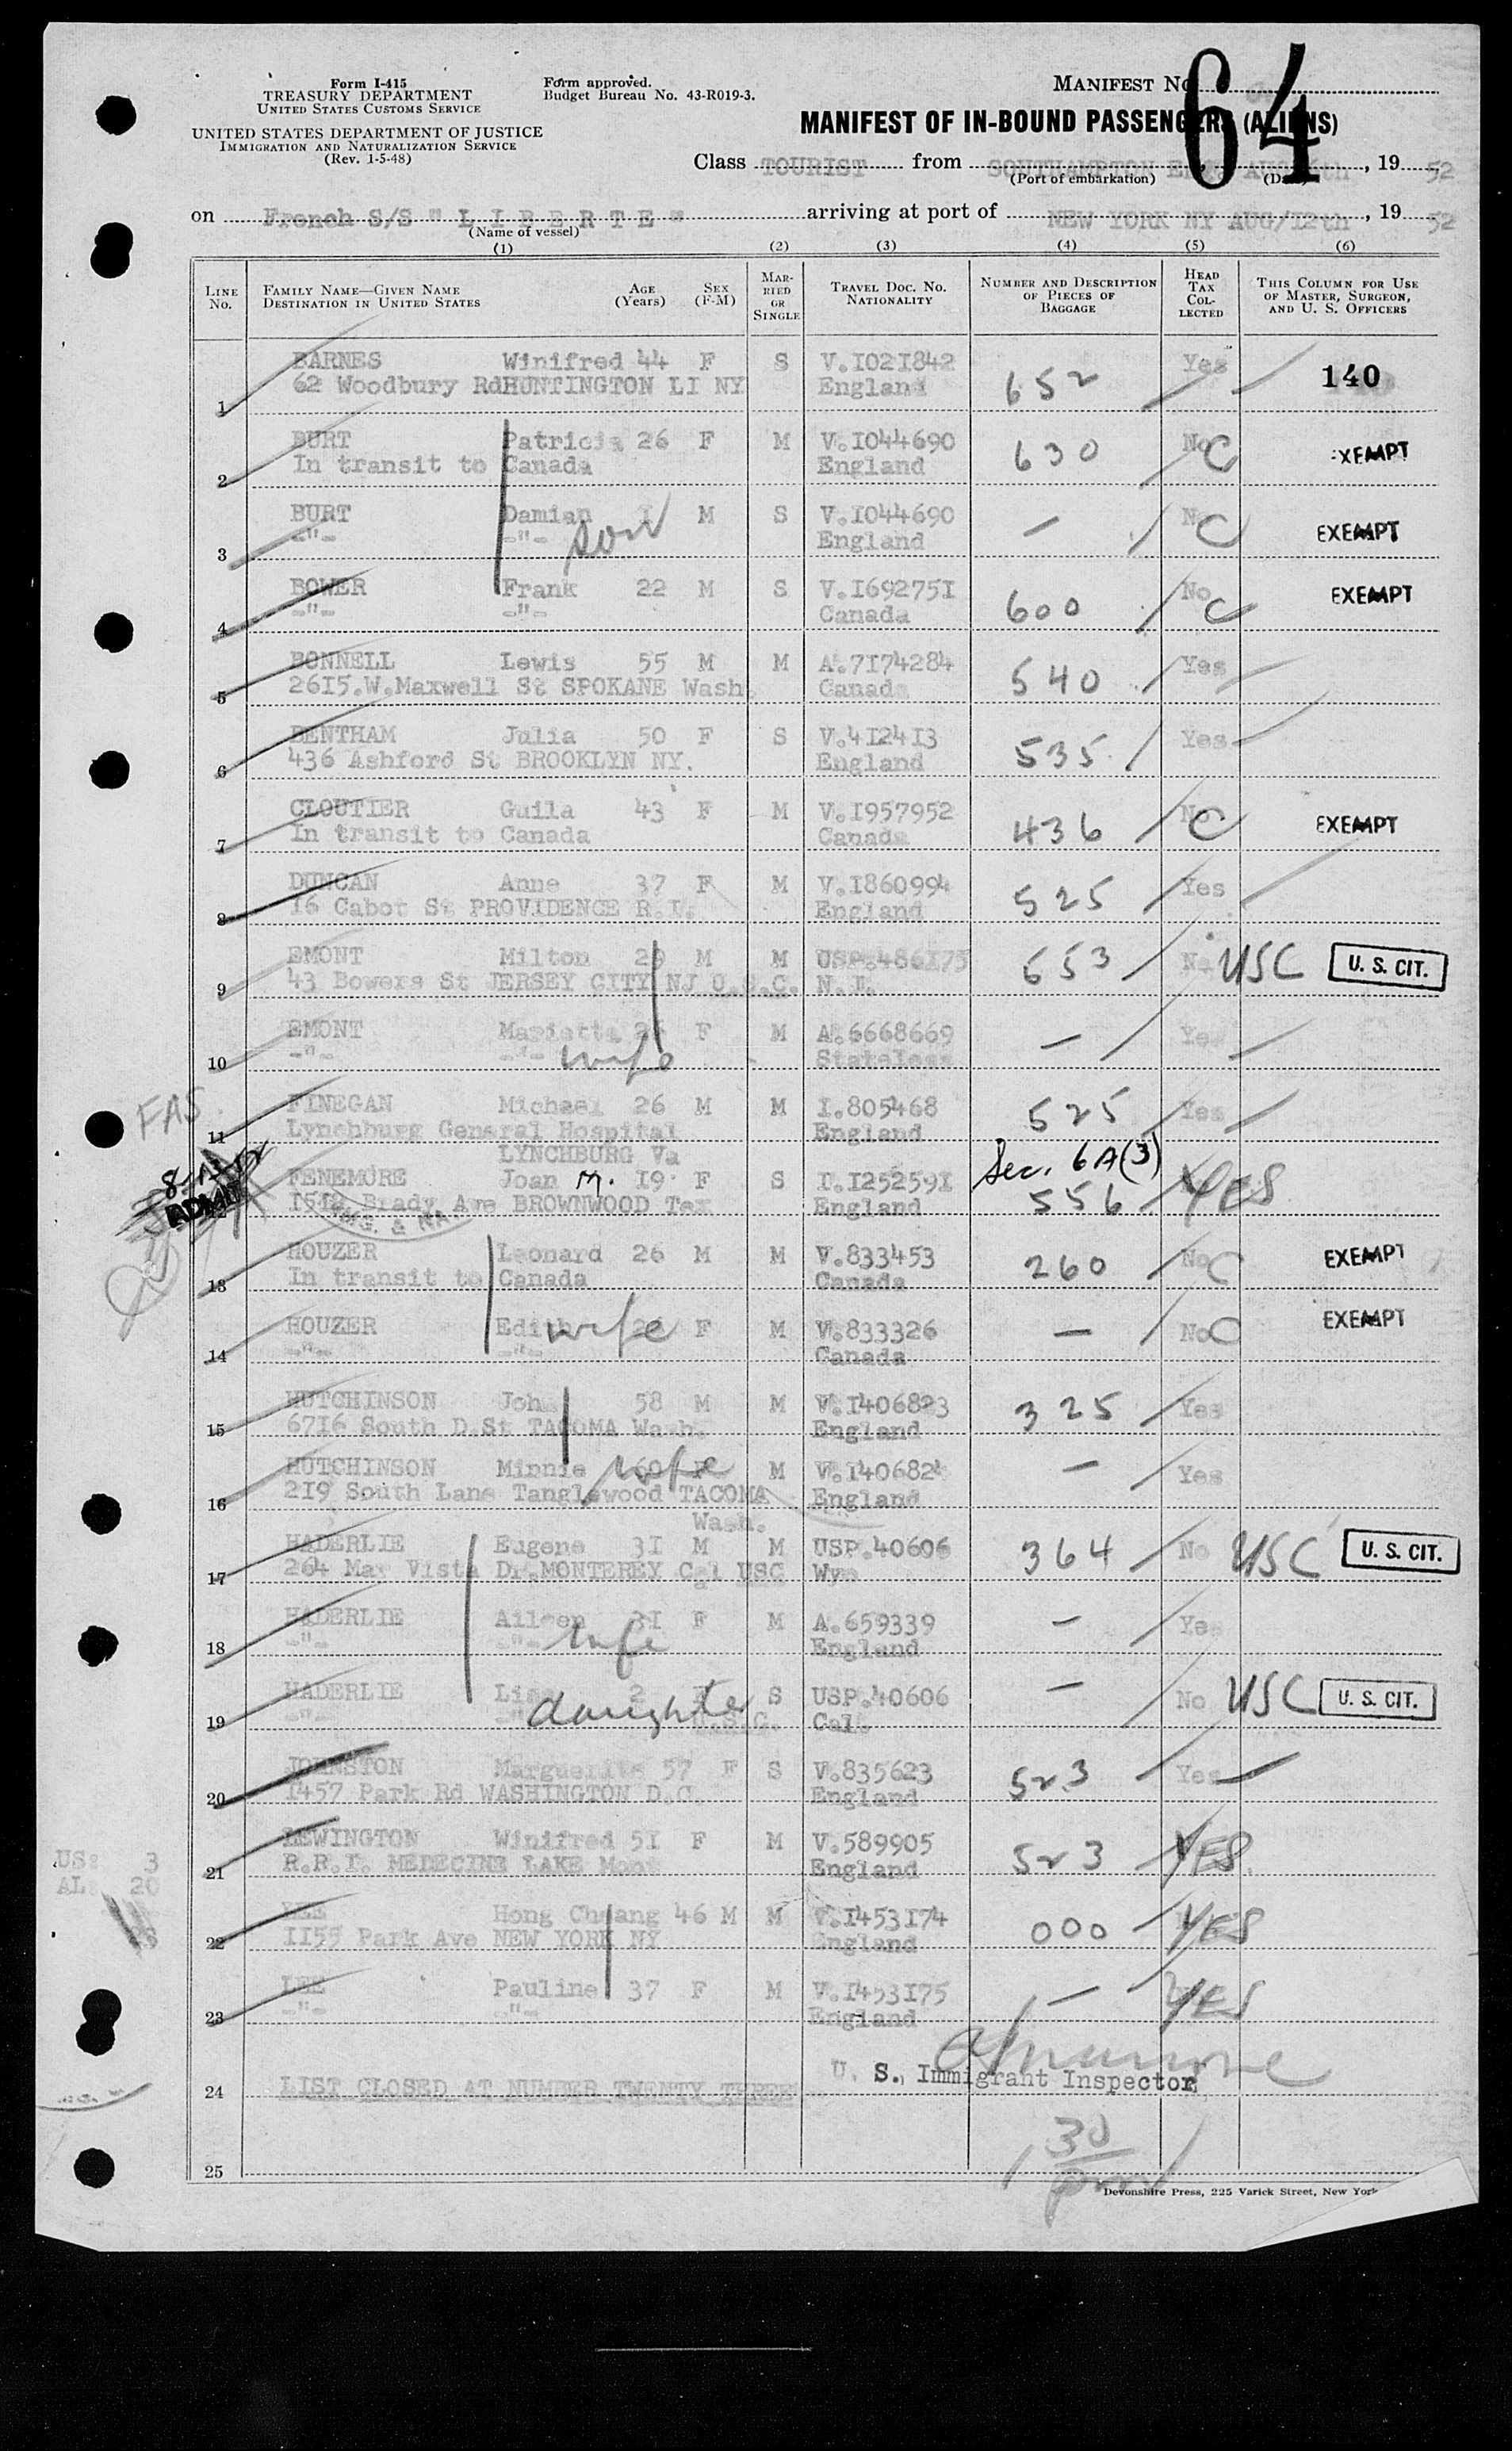 Form I-415
TREASURY DEPARTMENT
UNITED STATES CUSTOMS SERVICE
UNITED STATES DEPARTMENT OF JUSTICE
IMMIGRATION AND NATURALIZATION SERVICE
(Rev. 1-5-48)
Form approved.
Budget Bureau No. 43-R019-3.
MANIFEST No.
64
MANIFEST OF IN-BOUND PASSENGERS (ALIENS)
Class TOURIST from SOUTHAMPTON , 19 52
(Port of embarkation) (Date)
on French S/S "LIBERTE" arriving at port of NEW YORK NY AUG/12th , 19 52
(Name of vessel)
(1) (2) (3) (4) (5) (6)
LINE No. FAMILY NAME—GIVEN NAME DESTINATION IN UNITED STATES AGE (Years) SEX (F-M) MARRIED OR SINGLE TRAVEL DOC. NO. NATIONALITY NUMBER AND DESCRIPTION OF PIECES OF BAGGAGE HEAD TAX COLLECTED THIS COLUMN FOR USE OF MASTER, SURGEON, AND U. S. OFFICERS
BARNES Winifred 44 F S V.1021842 652 Yes 140
1 62 Woodbury Rd HUNTINGTON LI NY England
BURT Patricia 26 F M V.1044690 630 No C EXEMPT
2 In transit to Canada England
BURT Damian 1 M S V.1044690 — No C EXEMPT
3 -"- -"- son England
BOWER Frank 22 M S V.1692751 600 No C EXEMPT
4 -"- -"- Canada
BONNELL Lewis 55 M M A.7174284 540 Yes
5 2615.W.Maxwell St SPOKANE Wash. Canada
BENTHAM Julia 50 F S V.412413 535 Yes
6 436 Ashford St BROOKLYN NY. England
CLOUTIER Guila 43 F M V.1957952 436 No C EXEMPT
7 In transit to Canada Canada
DUNCAN Anne 37 F M V.1860994 525 Yes
8 16 Cabot St PROVIDENCE R.I. England
EMONT Milton 29 M M USP.486175 653 No USC U. S. CIT.
9 43 Bowers St JERSEY CITY NJ U.S.C. N.J.
EMONT Marietta F M A.6668669 — Yes
10 -"- -"- wife Stateless
FAS
FINEGAN Michael 26 M M I.805468 525 Yes
11 Lynchburg General Hospital England
LYNCHBURG Va Sec. 6A(3)
FENEMORE Joan M. 19 F S I.1252591 556 YES
ADMIT Brady Ave BROWNWOOD Tex England
IMG. & NA
HOUZER Leonard 26 M M V.833453 260 No C EXEMPT
13 In transit to Canada Canada
HOUZER Edith wife F M V.833326 — No C EXEMPT
14 -"- -"- Canada
HUTCHINSON John 58 M M V.1406823 325 Yes
15 6716 South D.St TACOMA Wash. England
HUTCHINSON Minnie 60 F wife M V.1406824 — Yes
16 219 South Lane Tanglewood TACOMA Wash. England
HADERLIE Eugene 31 M M USP.40606 364 No USC U. S. CIT.
17 264 Mar Vista Dr.MONTEREY Cal USC Wyo
HADERLIE Aileen 31 F M A.659339 — Yes
18 -"- -"- wife England
HADERLIE Lisa 2 S USP.40606 — No USC U. S. CIT.
19 -"- -"- daughter U.S.C. Cal.
JOHNSTON Marguerite 57 F S V.835623 523 Yes
20 1457 Park Rd WASHINGTON D.C. England
LEWINGTON Winifred 51 F M V.589905 523 YES
21 R.R.I. MEDECINE LAKE Mont England
US: 3
AL: 20
LEE Hong Chuang 46 M M V.1453174 000 YES
22 1155 Park Ave NEW YORK NY England
LEE Pauline 37 F M V.1453175 — YES
23 -"- -"- England
U. S. Immigrant Inspector
24 LIST CLOSED AT NUMBER TWENTY THREE
130
pm
25
Devonshire Press, 225 Varick Street, New York